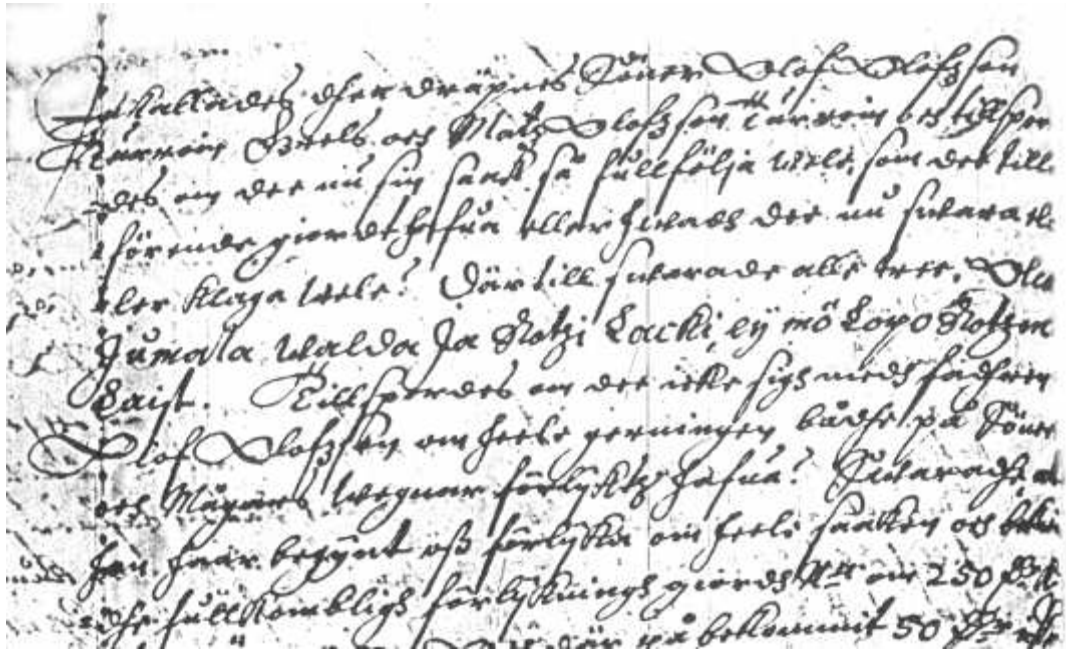 Inkallades dher dräpnes Söner Oloff Oloffzson
Kurroin Grels och Matz Oloffzson Kurroin och tillspor
des om dee nu sin saak så fullfölja wele, som dee till
förende giordt hafua eller hwadh dee nu swara el
ler klaga wele? Där till swarade alle tree, Olu
Jumala walda ja Rotzi Lacki, ey mö Lopo Rotzin
Laist. Tillspordes om dee icke sigh medh fadhren
Olof Oloffzson om heele gerningen bådhe på Söner
och Mågars wegnar förlyktz hafua? Swaradhe at
han haar begynt oss förlijka om heele saaken och
dhe fullkombligh förlijkningh giordh om 250
där på bekommit 50